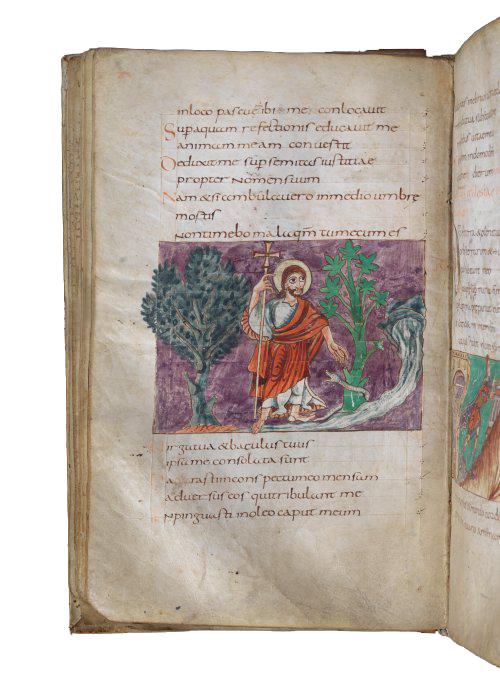 in loco pascuę ibi me conlocavit
Sup aquam refectionis educavit me
animam meam convertit
Deduxit me sup semitas iustitiae
propter nomen suum
Nam & si ambulavero in medio umbre
mortis
Non timebo mala qm̄ tu mecum es
Virga tua & baculus tuus
ipsa me consolata sunt
Parasti in conspectu meo mensam
adversus eos qui tribulant me
Inpinguasti in oleo caput meum